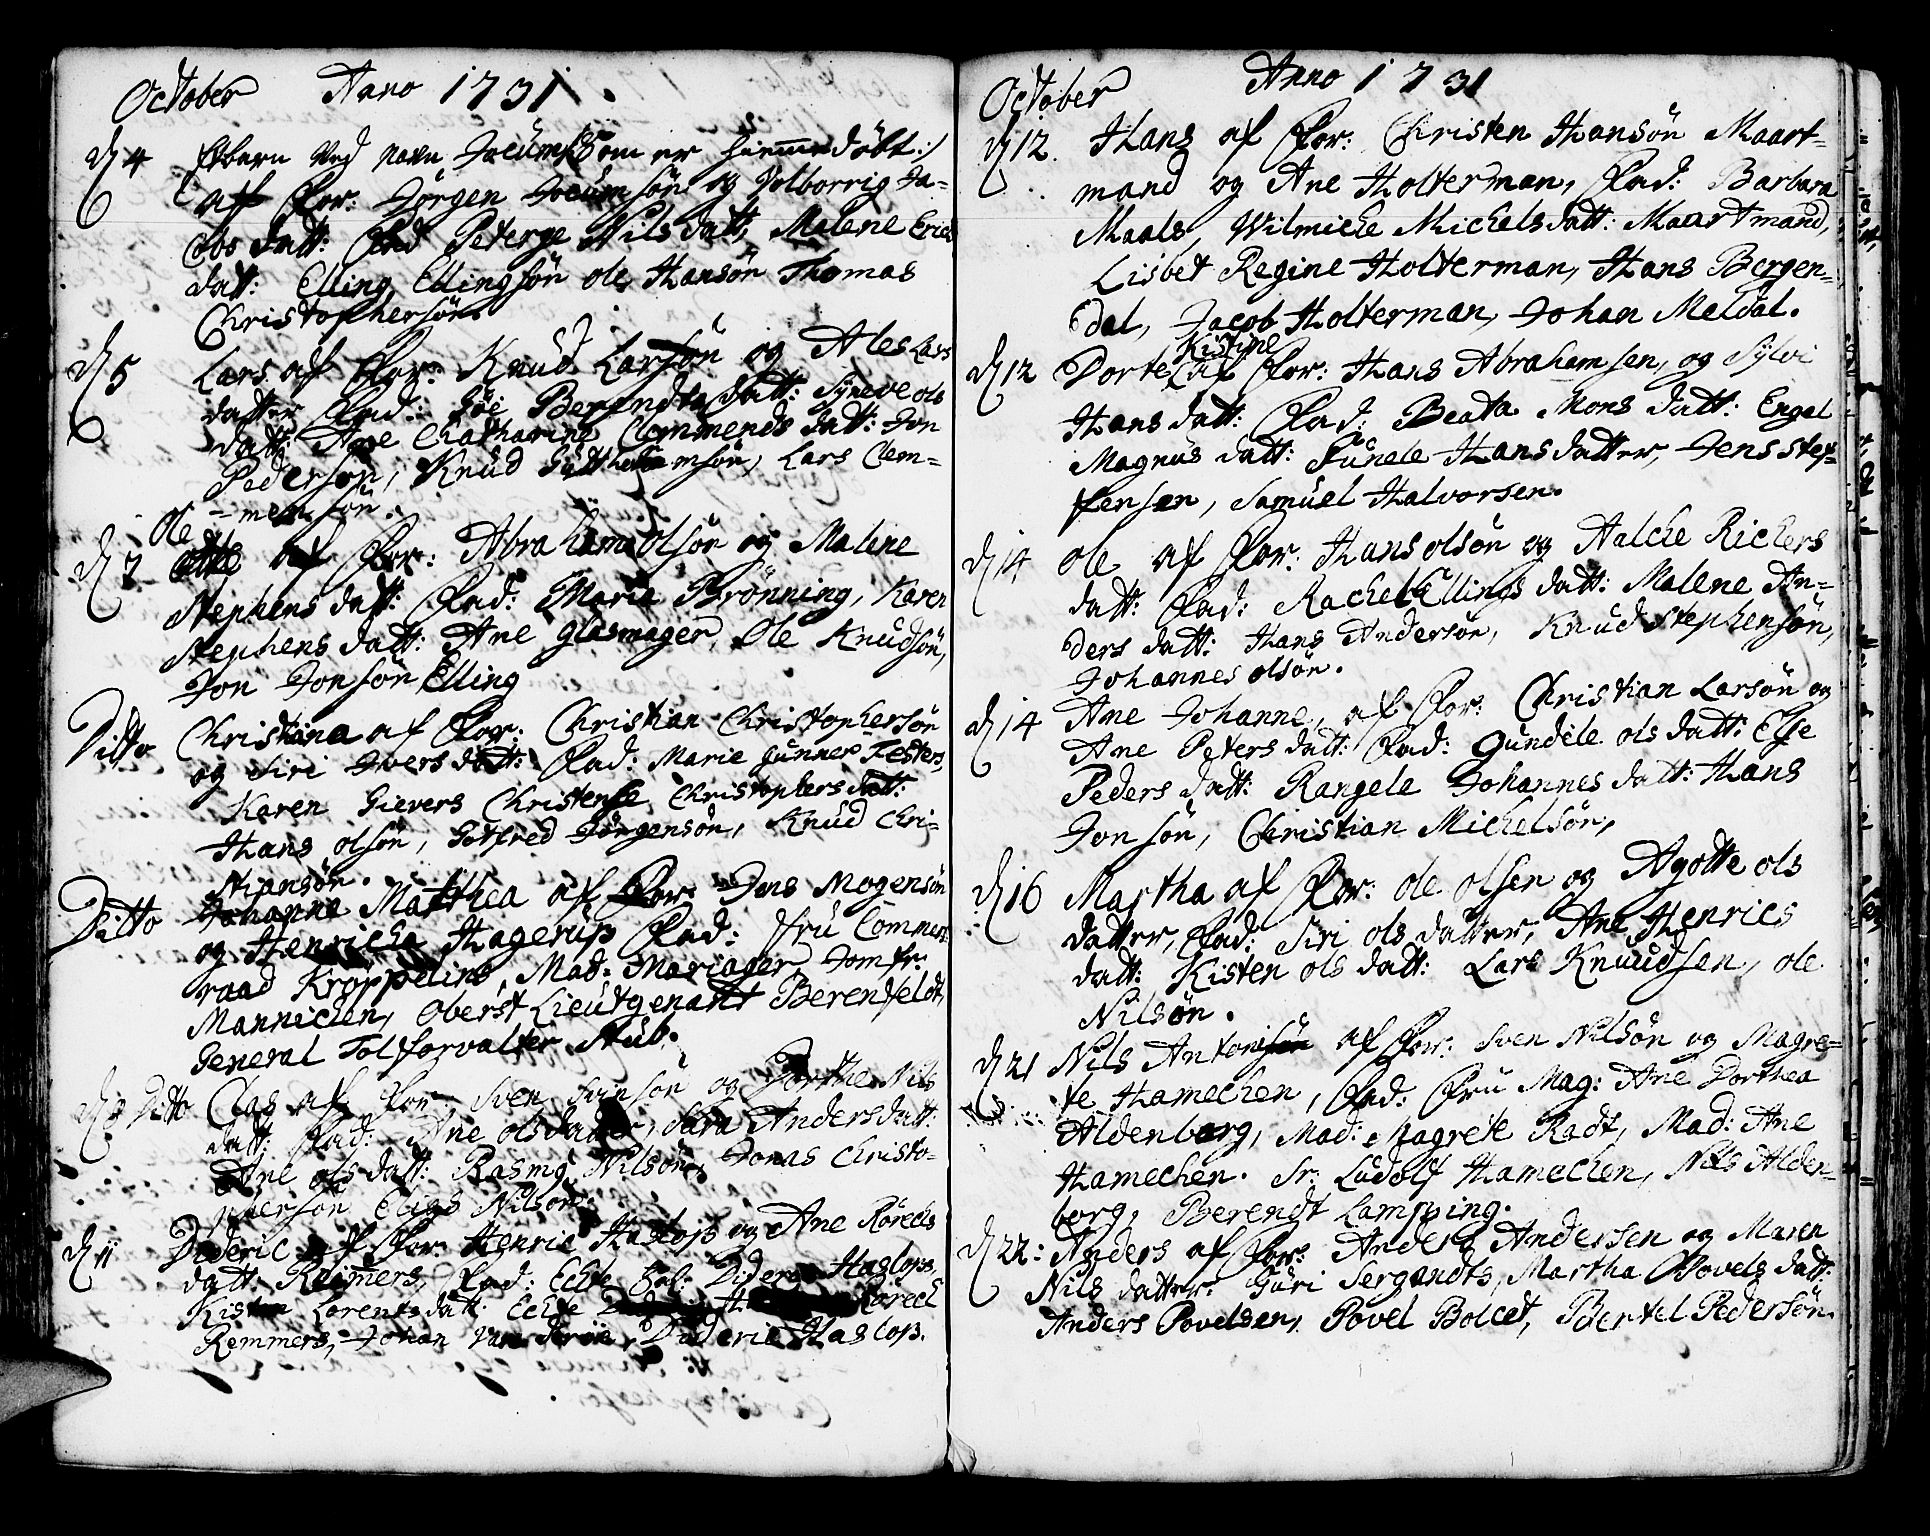 October Anno 1731.
D 4 Et barn ved navn Jocum som er hiemmedöbt:/
aff For: Jörgen Jocumsön og Volborrig Ja-
cobs datt: Fad Peterge Nilsdatt, Malene Erics
datt: Elling Ellingsön ole Hansön Thomas
Christophersön.
D 5 Lars af For: Knud Larsön og Ales Lars
datter Fad: Göe Berendts datt: Syneve ols
datt: Ane Catharine Clemmends datt: Jon
Pedersön, Knud Guthormsön, Lars Clem-
-mensön.
Ole
D 7 af For: Abraham olsön og Malene
Stephens datt: Fad: Marie Brönning, Karen
Stephens datt: Ane Glasmager, Ole Knudsön,
Jon Jonsön Elling
Ditto Christiana af For: Christian Christophersön
og Siri Ivers datt: Fad: Marie Gunner Festers,
Karen Sievers Christense Christophers datt:
Hans olsön, Gotfred Jörgensön, Knud Chri-
stiansön.
Ditto Johanne Matthea af For: Jens Mogensön
og Henricha Hagerup Fad: Fru Commerc
raad Kroppelins, Mad: Mariager, Jomfr:
Mannichen, Oberst Lieutgenant Berenfeldt,
General Tolforvalter Stub.
D 8 Ditto Clas af For Sven Svinsön og Dorthe Nils
datt: Fad: Ane olsdatter, Sara Andersdatt:
Ane ols datt: Rasmg Nilsön, Jonas Christo-
phersön Elias Nilsön.
D 11 Dideric af For: Henric Haslop og Ane Rörechs
datt Reimers, Fad: Echte Sal: Dideric Haslops,
Kisten Lorents datt: Echte Rörech
Remmers, Johan van der Dideric Haslop.
October Anno 1731
D 12. Hans af For: Christen Hansön Maart-
mand og Ane Holterman, Fad: Barbara
Maals, Wilmiche Michels datt: Maartmand,
Lisbet Regine Holterman, Hans Bergen-
dal, Jacob Holterman, Johan Meldal.
Kistine
D 12 Dorte af For: Hans Abrahamsen, og Sylvi
Hans datt: Fad: Beata Mons datt: Engel
Magnus datt: Sunele Hansdatter, Jens Stef-
fensen, Samuel Halvorsen.
D 14 ole af For: Hans olsön og Aalche Richers
datt: Fad: Rachel Ellings datt: Malene An-
ders datt: Hans Andersön, Knud Stephensön,
Johannes olsön.
D 14 Ane Johanne, af For: Christian Larsön og
Ane Peters datt: Fad: Gundele ols datt: Else
Peders datt: Rangele Johannes datt: Hans
Jonsön, Christian Michelsön,
D 16 Martha af For: ole olsen og Agotte ols
datter, Fad: Siri ols datter, Ane Henrics
datt: Kisten ols datt: Lars Knuudsen, ole
Nilsön.
D 21 Nils Antoni af For: Sven Nilsön og Magre-
te Hamechen, Fad: Fru Mag: Ane Dorthea
Aldenborg, Mad: Magrete Radt, Mad: Ane
Hamechen. Sr. Ludolf Hamechen, Nils Alden-
borg, Berendt Lamping.
D 22: Anders af For: Anders Andersen og Maren
Nils datter. Guri Sergandts, Martha Povels datt:
Anders Povelsen, Povel Bolcet, Bertel Pedersön.